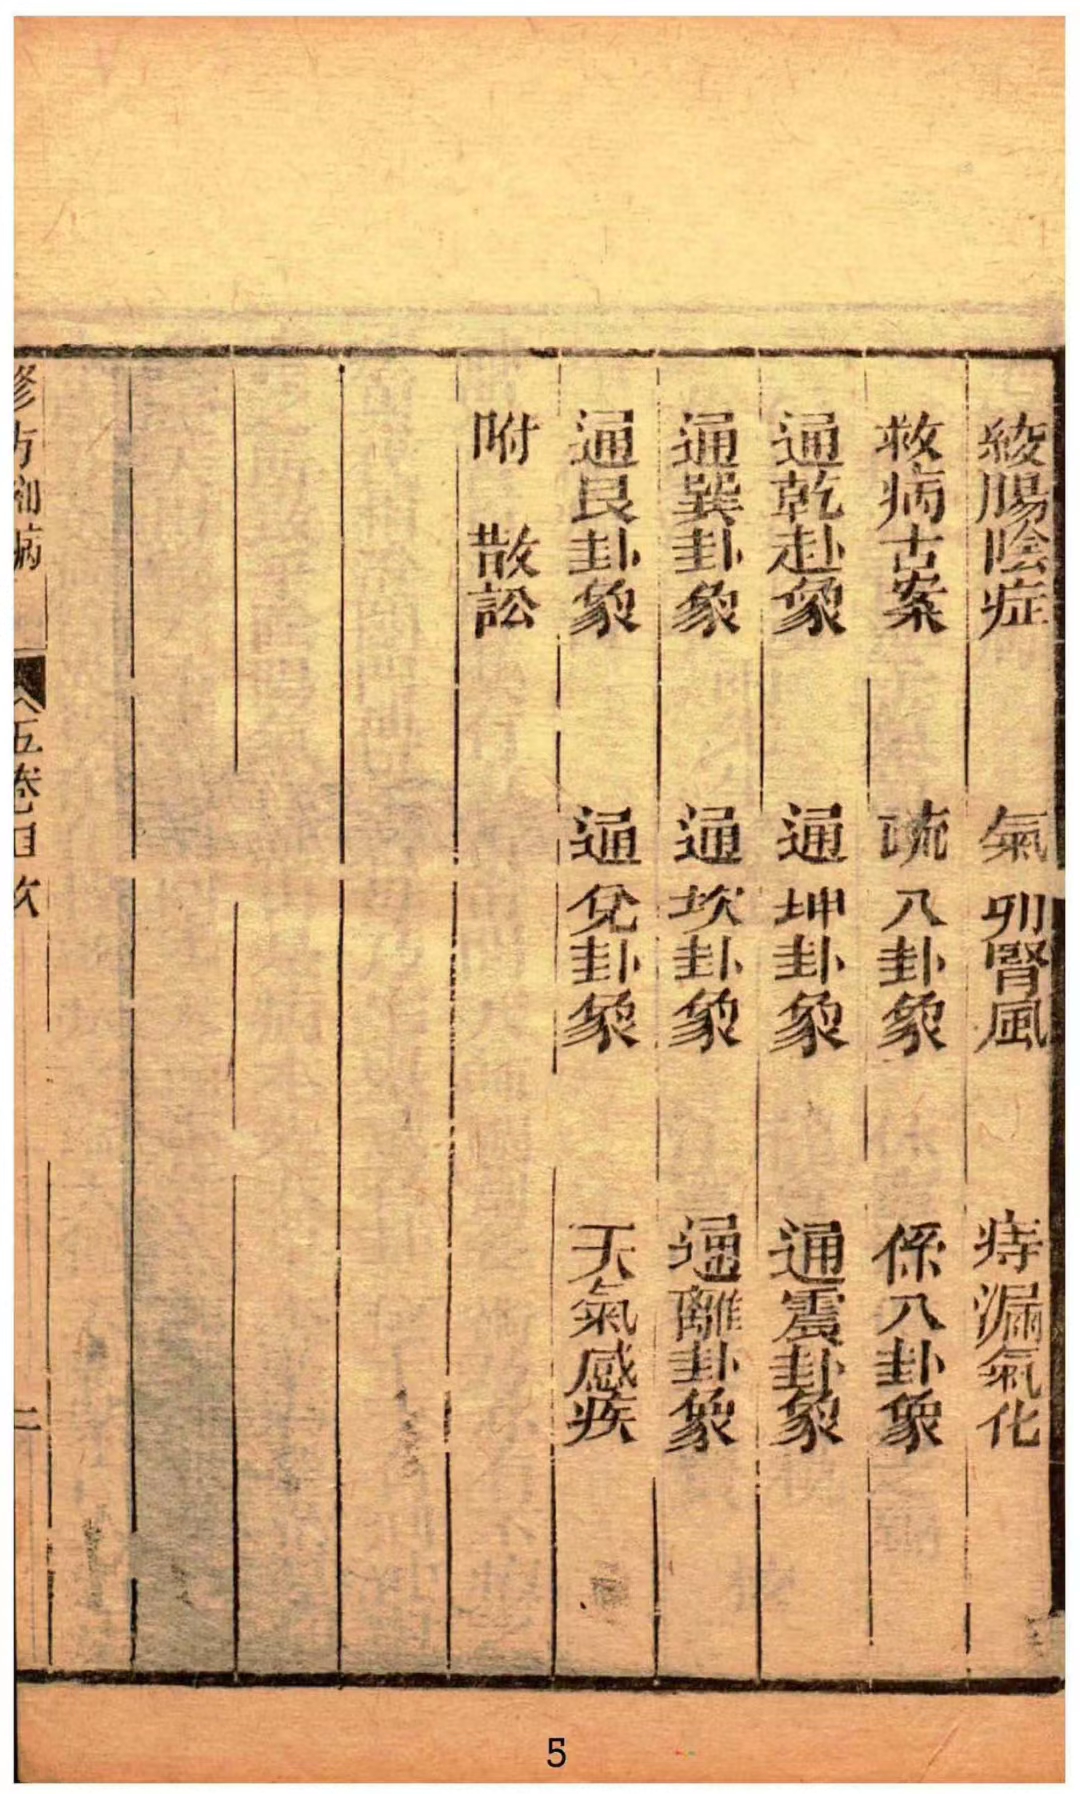 絞腸陰症　氣卵腎風　痔漏氣化
救病古案　疏八卦象　係八卦象
通乾卦象　通坤卦象　通震卦象
通巽卦象　通坎卦象　通離卦象
通艮卦象　通兌卦象　天氣感疾
附　散訟
修方卻病　五卷目次　二
5